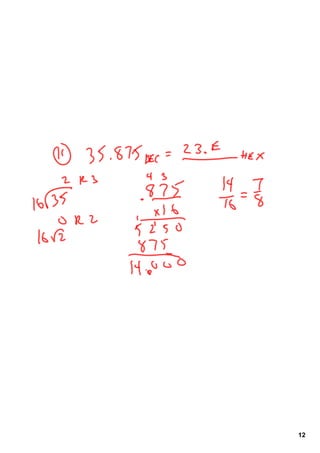 11) 35.875 DEC = 23.E HEX
2 R3
16√35
0 R2
16√2
4 3
.875
x16
1 1
5250
875
14.000
14/16 = 7/8
12